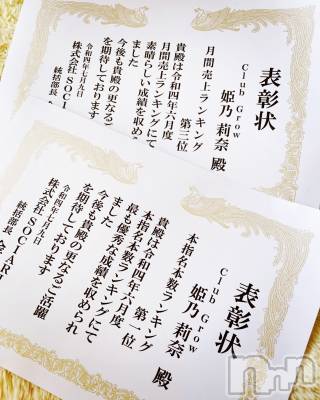 表彰状
Club Grow
姫乃 莉奈 殿
月間売上ランキング 第三位
貴殿は令和四年六月度
月間売上ランキングにて
素晴らしい成績を収め
ました
今後も貴殿の更なるご
を期待しております
令和四年七月九日
株式会社 SOCI
統括部長
表彰状
Club Grow
姫乃 莉奈 殿
本指名本数ランキング 第一位
貴殿は令和四年六月度
本指名本数ランキングにて
最も優秀な成績を収められ
ました
今後も貴殿の更なるご活躍
を期待しております
令和四年七月九日
株式会社 SOCIARI
統括部長